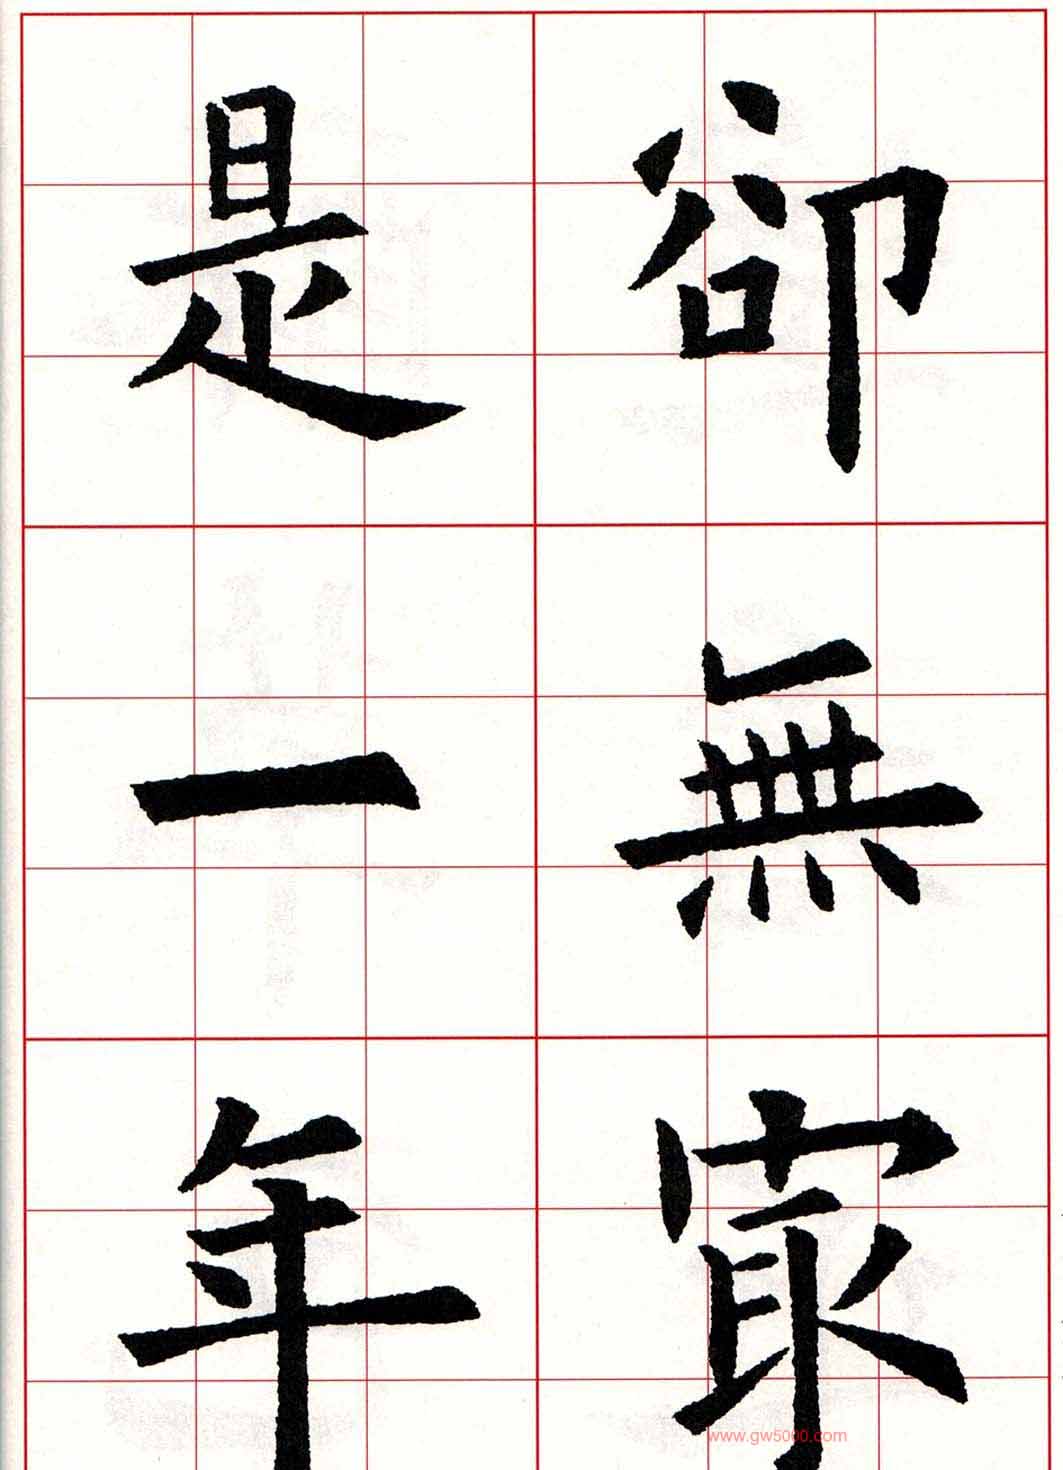 卻無最
是一年
www.gw5000.com